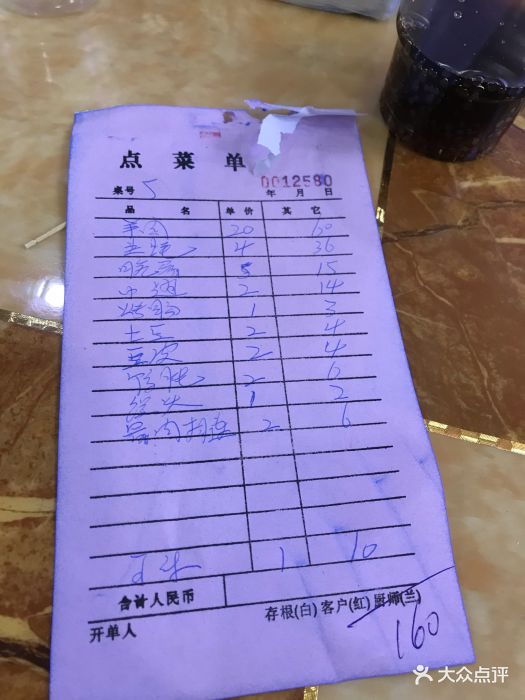 点菜单
0012580
桌号 5 年 月 日
品 名 单价 其 它
羊肉 20 60
4 36
5 15
中翅 2 14
1 3
土豆 2 4
豆皮 2 4
2 6
馒头 1 2
2 6
1 10
合计人民币
存根(白) 客户(红) 厨师(兰)
开单人
160
大众点评